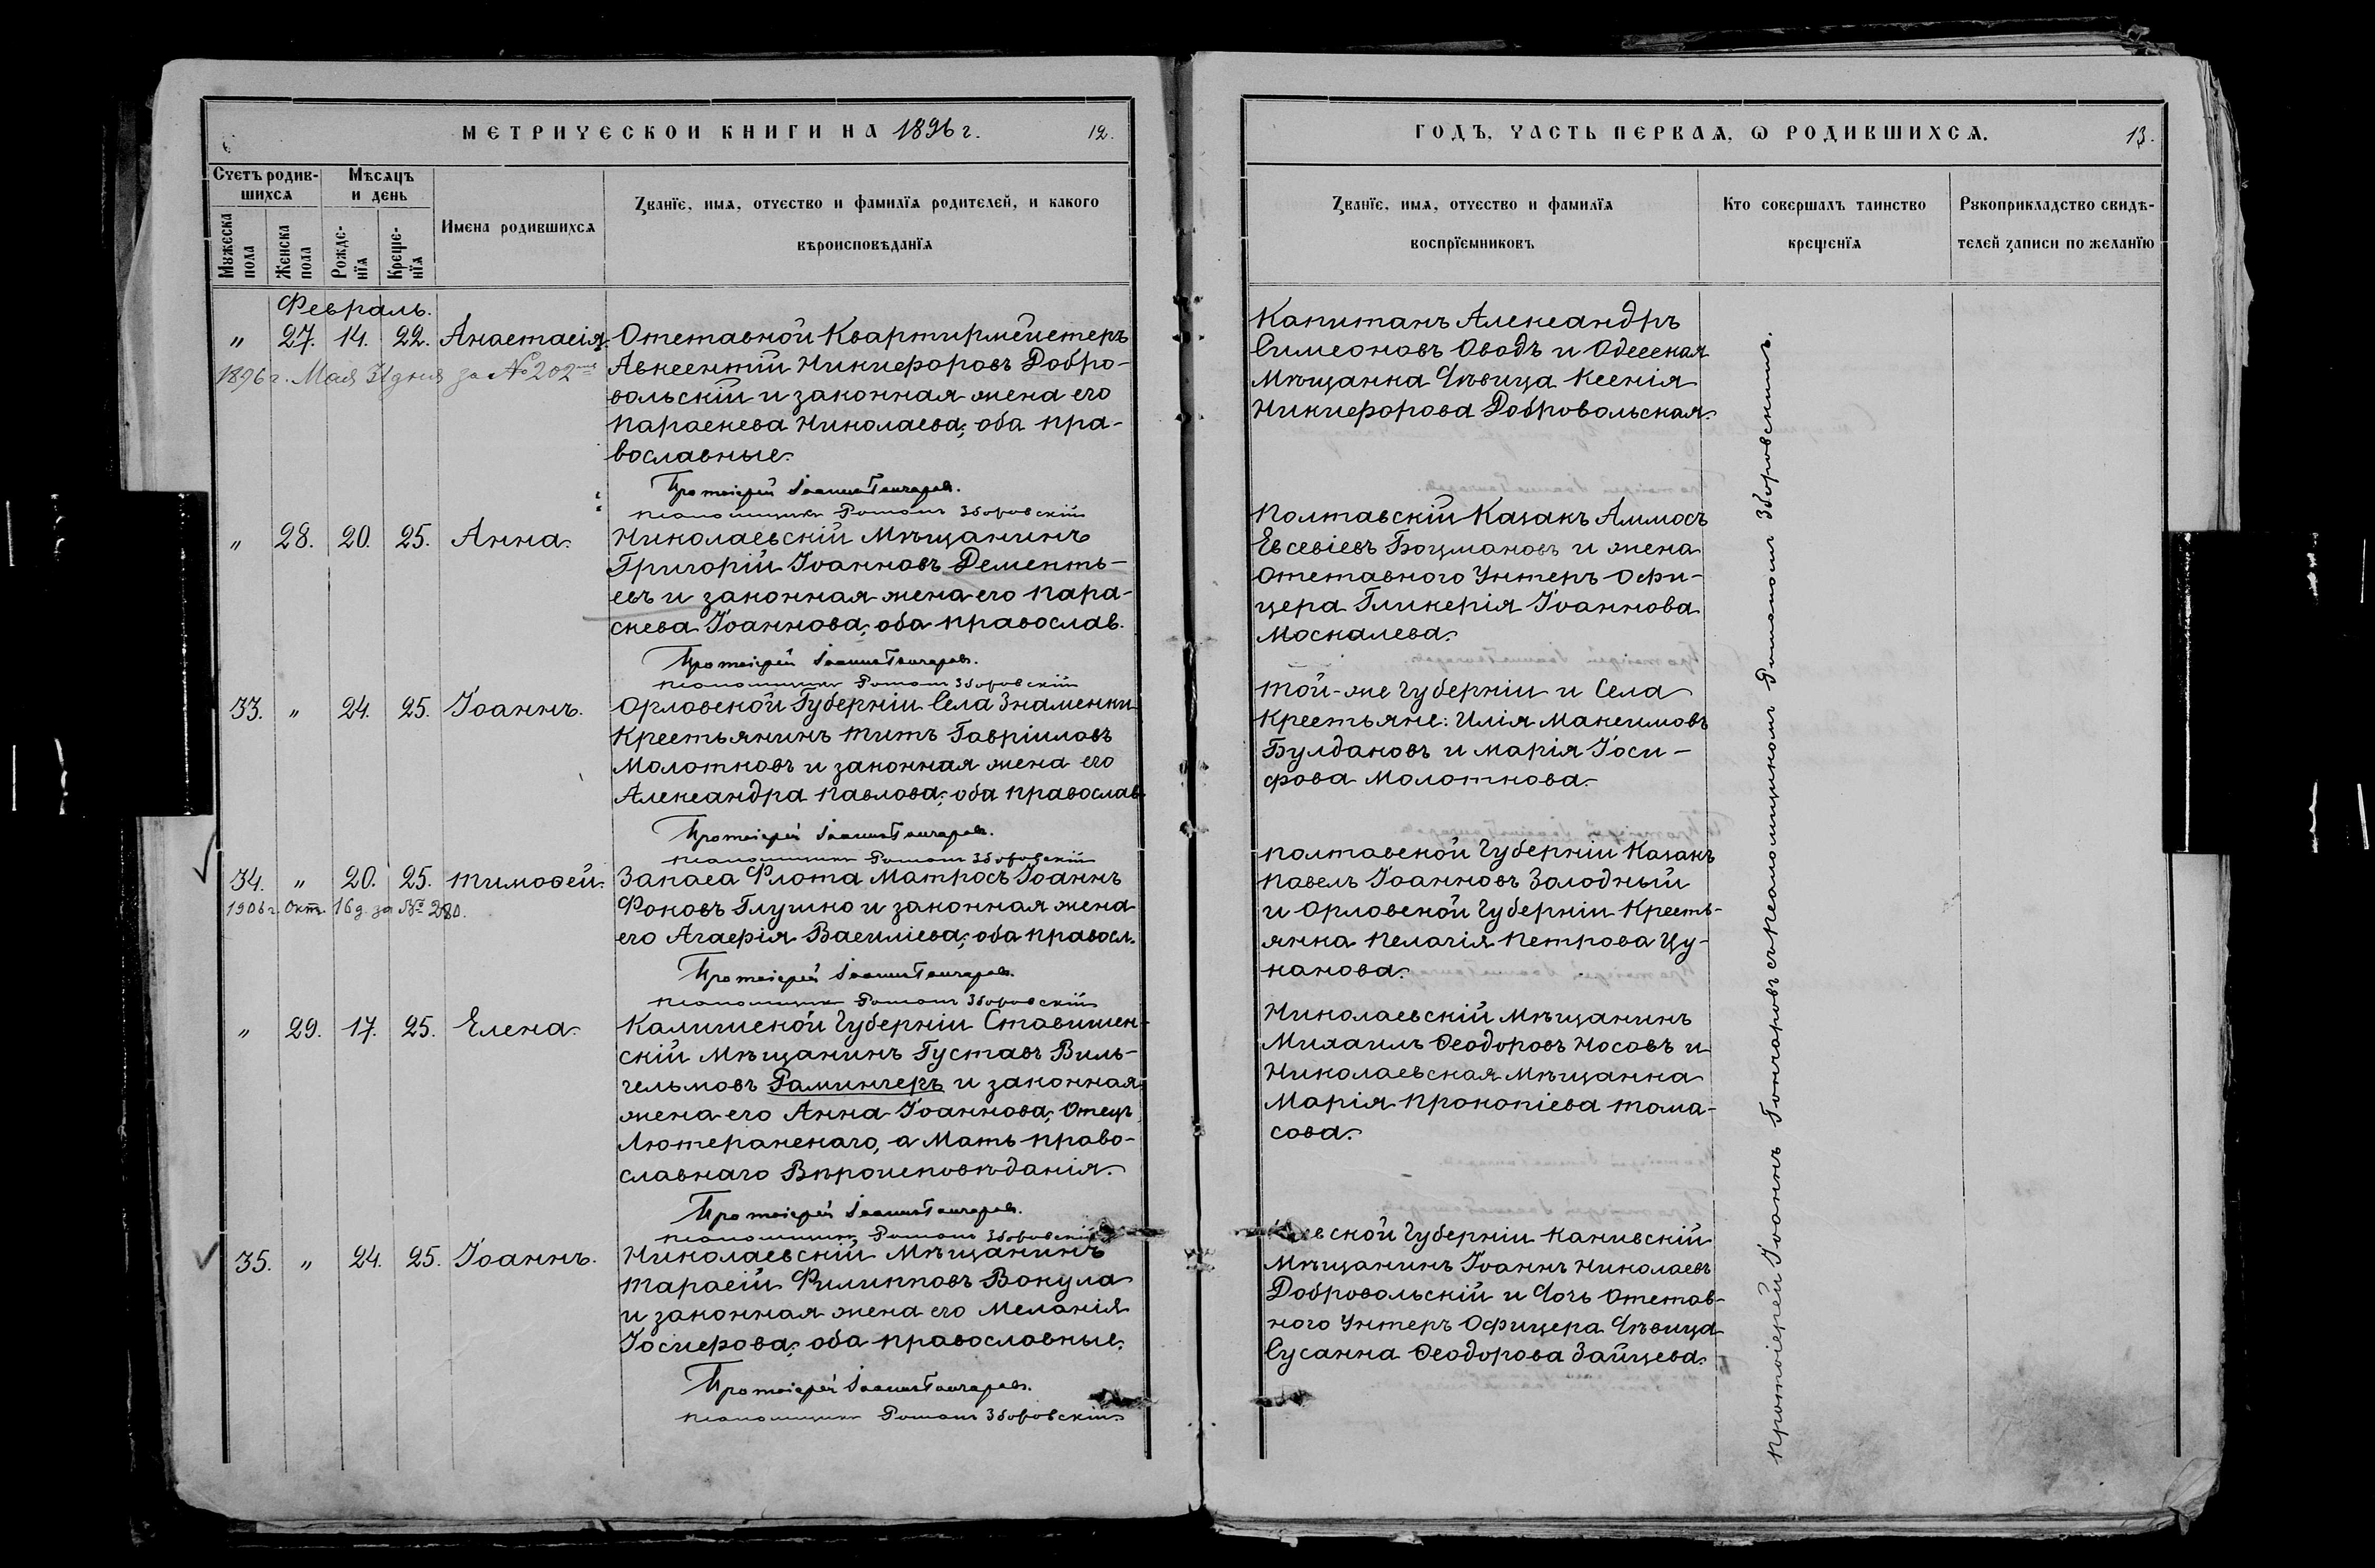 МЕТРИЧЕСКОЙ КНИГИ НА 1896 г. 12.
Счетъ родив-
шихся
Мѣсяцъ
и день
Мужеска
пола
Женска
пола
Рожде-
нія
Креще-
нія
Имена родившихся
Званіе, имя, отчество и фамилія родителей, и какого
вѣроисповѣданія
Февраль.
" 27. 14. 22. Анастасія. Отставной Квартирмейстеръ
1896 г. Мая 31 дня за № 202 Авксентій Никифоровъ Добро-
вольскій и законная жена его
Параскева Николаева; оба пра-
вославные.
Протоіерей Іоаннъ Гончаровъ.
Псаломщикъ Романъ Зборовскій
" 28. 20. 25. Анна. Николаевскій Мѣщанинъ
Григорій Іоанновъ Дементь-
евъ и законная жена его Пара-
скева Іоаннова; оба православ.
Протоіерей Іоаннъ Гончаровъ.
Псаломщикъ Романъ Зборовскій
33. " 24. 25. Іоаннъ. Орловской Губерніи Села Знаменки
Крестьянинъ Титъ Гавріиловъ
Молотковъ и законная жена его
Александра Павлова; оба православ.
Протоіерей Іоаннъ Гончаровъ.
Псаломщикъ Романъ Зборовскій
34. " 20. 25. Тимофей. Запаса Флота Матросъ Іоаннъ
1906 г. Окт. 16 д. за № 280. Фоковъ Глушко и законная жена
его Агафія Василіева; оба правосл.
Протоіерей Іоаннъ Гончаровъ.
Псаломщикъ Романъ Зборовскій
" 29. 17. 25. Елена. Калишской Губерніи Ставишен-
скій Мѣщанинъ Густавъ Виль-
гельмовъ Рамингеръ и законная
жена его Анна Іоаннова, Отецъ
Лютеранскаго, а Мать право-
славнаго Вѣроисповѣданія.
Протоіерей Іоаннъ Гончаровъ.
Псаломщикъ Романъ Зборовскій
35. " 24. 25. Іоаннъ. Николаевскій Мѣщанинъ
Тарасій Филипповъ Вокула
и законная жена его Меланія
Іосифова; оба православные.
Протоіерей Іоаннъ Гончаровъ.
Псаломщикъ Романъ Зборовскій
ГОДЪ, ЧАСТЬ ПЕРВАЯ, Ѡ РОДИВШИХСЯ. 13.
Званіе, имя, отчество и фамилія
воспріемниковъ
Кто совершалъ таинство
крещенія
Рукоприкладство свидѣ-
телей записи по желанію
Капитанъ Александръ
Симеоновъ Оводъ и Одесская
Мѣщанка Дѣвица Ксенія
Никифорова Добровольская.
Полтавскій Казакъ Аммосъ
Евсевіевъ Боцмановъ и жена
Отставного Унтеръ Офи-
цера Гликерія Іоаннова
Москалева.
Той-же Губерніи и Села
Крестьяне: Илія Максимовъ
Булдаковъ и Марія Іоси-
фова Молоткова.
Полтавской Губерніи Казакъ
Павелъ Іоанновъ Холодный
и Орловской Губерніи Кресть-
янка Пелагія Петрова Цу-
канова.
Николаевскій Мѣщанинъ
Михаилъ Ѳеодоровъ Носовъ и
Николаевская Мѣщанка
Марія Прокопіева Тома-
сова.
Губерніи Каневскій
Мѣщанинъ Іоаннъ Николаевъ
Добровольскій и Дочь Отстав-
ного Унтеръ Офицера Дѣвица
Сусанна Ѳеодорова Зайцева.
Протоіерей Іоаннъ Гончаровъ съ Псаломщикомъ Романомъ Зборовскимъ.